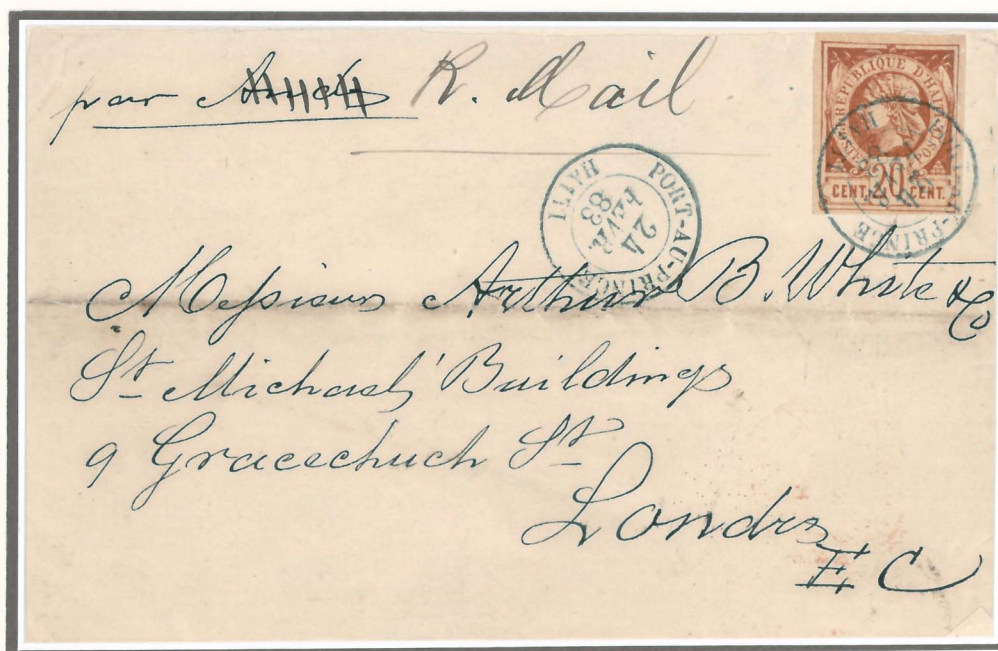 par R. Mail
REPUBLIQUE D'HAITI
POSTES
20
CENT. CENT.
PORT-AU-PRINCE
HAITI
24
FEVR.
83
PORT-AU-PRINCE
Messieurs Arthur B. White & Co
St Michael's Buildings
9 Gracechuch St
Londres
E C